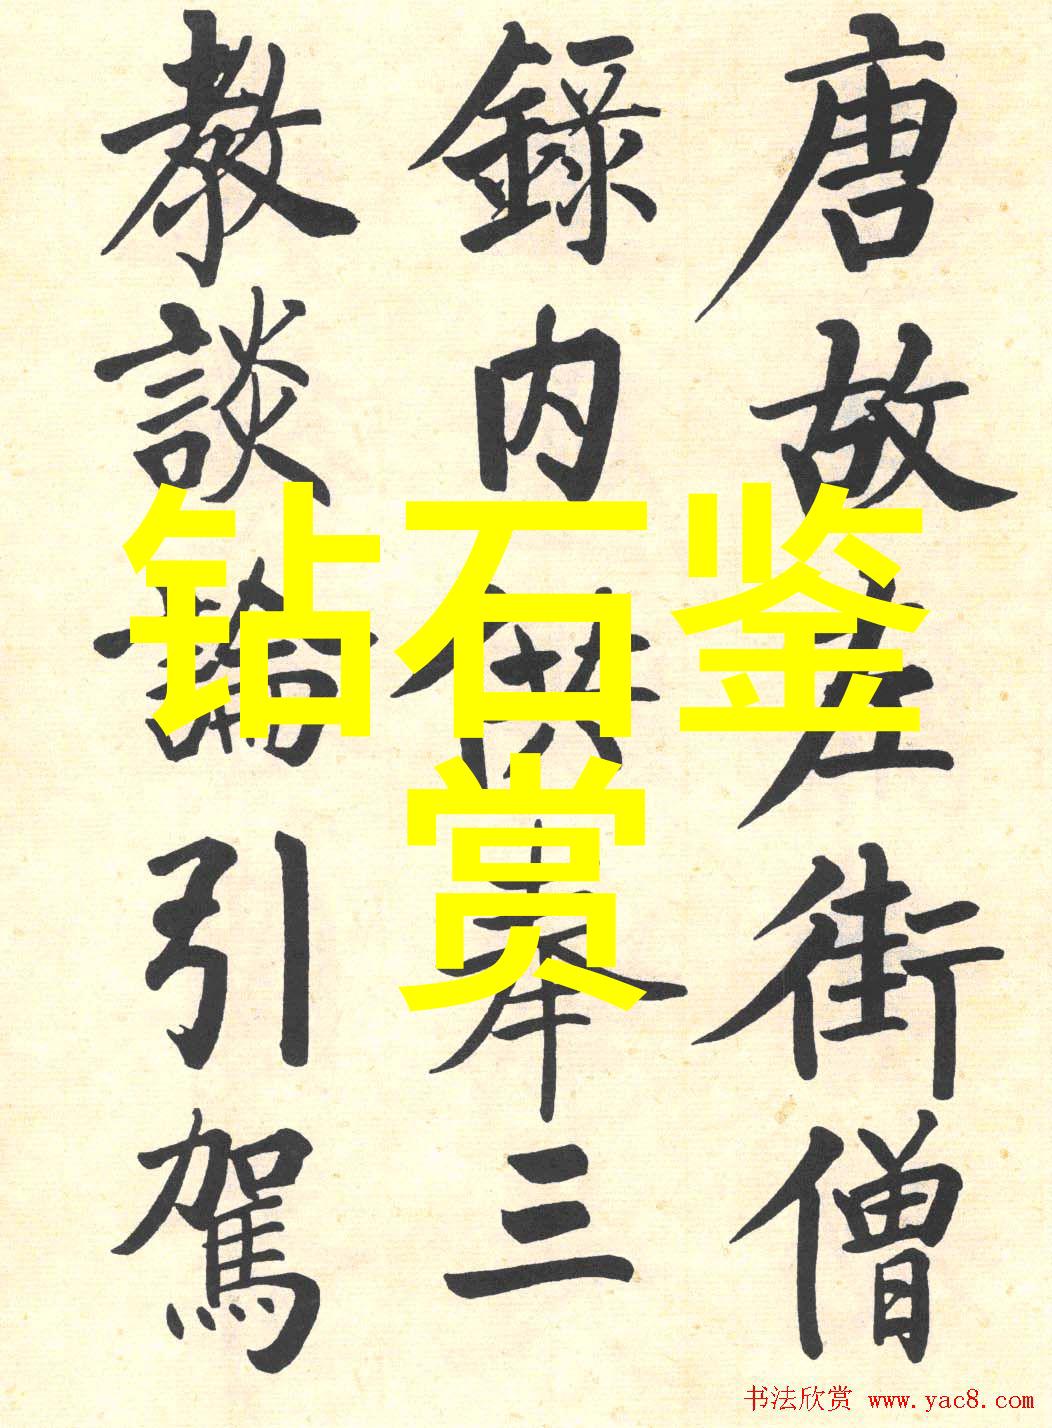 唐故左街僧
錄内供奉三
教談論引駕
钻石鉴
赏
书法欣赏 www.yac8.com